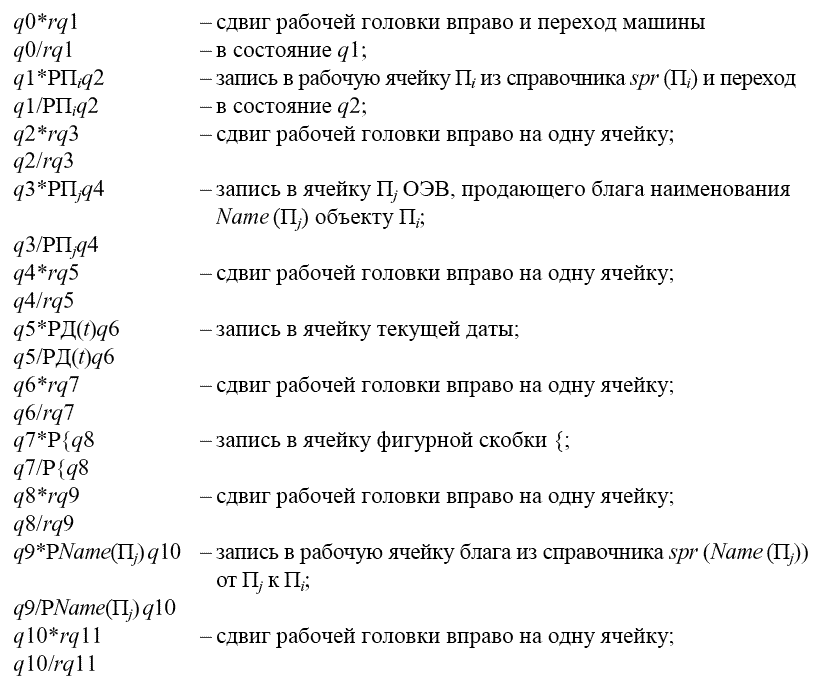 q0*rq1 – сдвиг рабочей головки вправо и переход машины
q0/rq1 – в состояние q1;
q1*РПiq2 – запись в рабочую ячейку Пi из справочника spr (Пi) и переход
q1/РПiq2 – в состояние q2;
q2*rq3 – сдвиг рабочей головки вправо на одну ячейку;
q2/rq3
q3*РПjq4 – запись в ячейку Пj ОЭВ, продающего блага наименования
Name (Пj) объекту Пi;
q3/РПjq4
q4*rq5 – сдвиг рабочей головки вправо на одну ячейку;
q4/rq5
q5*РД(t)q6 – запись в ячейку текущей даты;
q5/РД(t)q6
q6*rq7 – сдвиг рабочей головки вправо на одну ячейку;
q6/rq7
q7*Р{q8 – запись в ячейку фигурной скобки {;
q7/Р{q8
q8*rq9 – сдвиг рабочей головки вправо на одну ячейку;
q8/rq9
q9*РName(Пj) q10 – запись в рабочую ячейку блага из справочника spr (Name (Пj))
от Пj к Пi;
q9/РName(Пj) q10
q10*rq11 – сдвиг рабочей головки вправо на одну ячейку;
q10/rq11